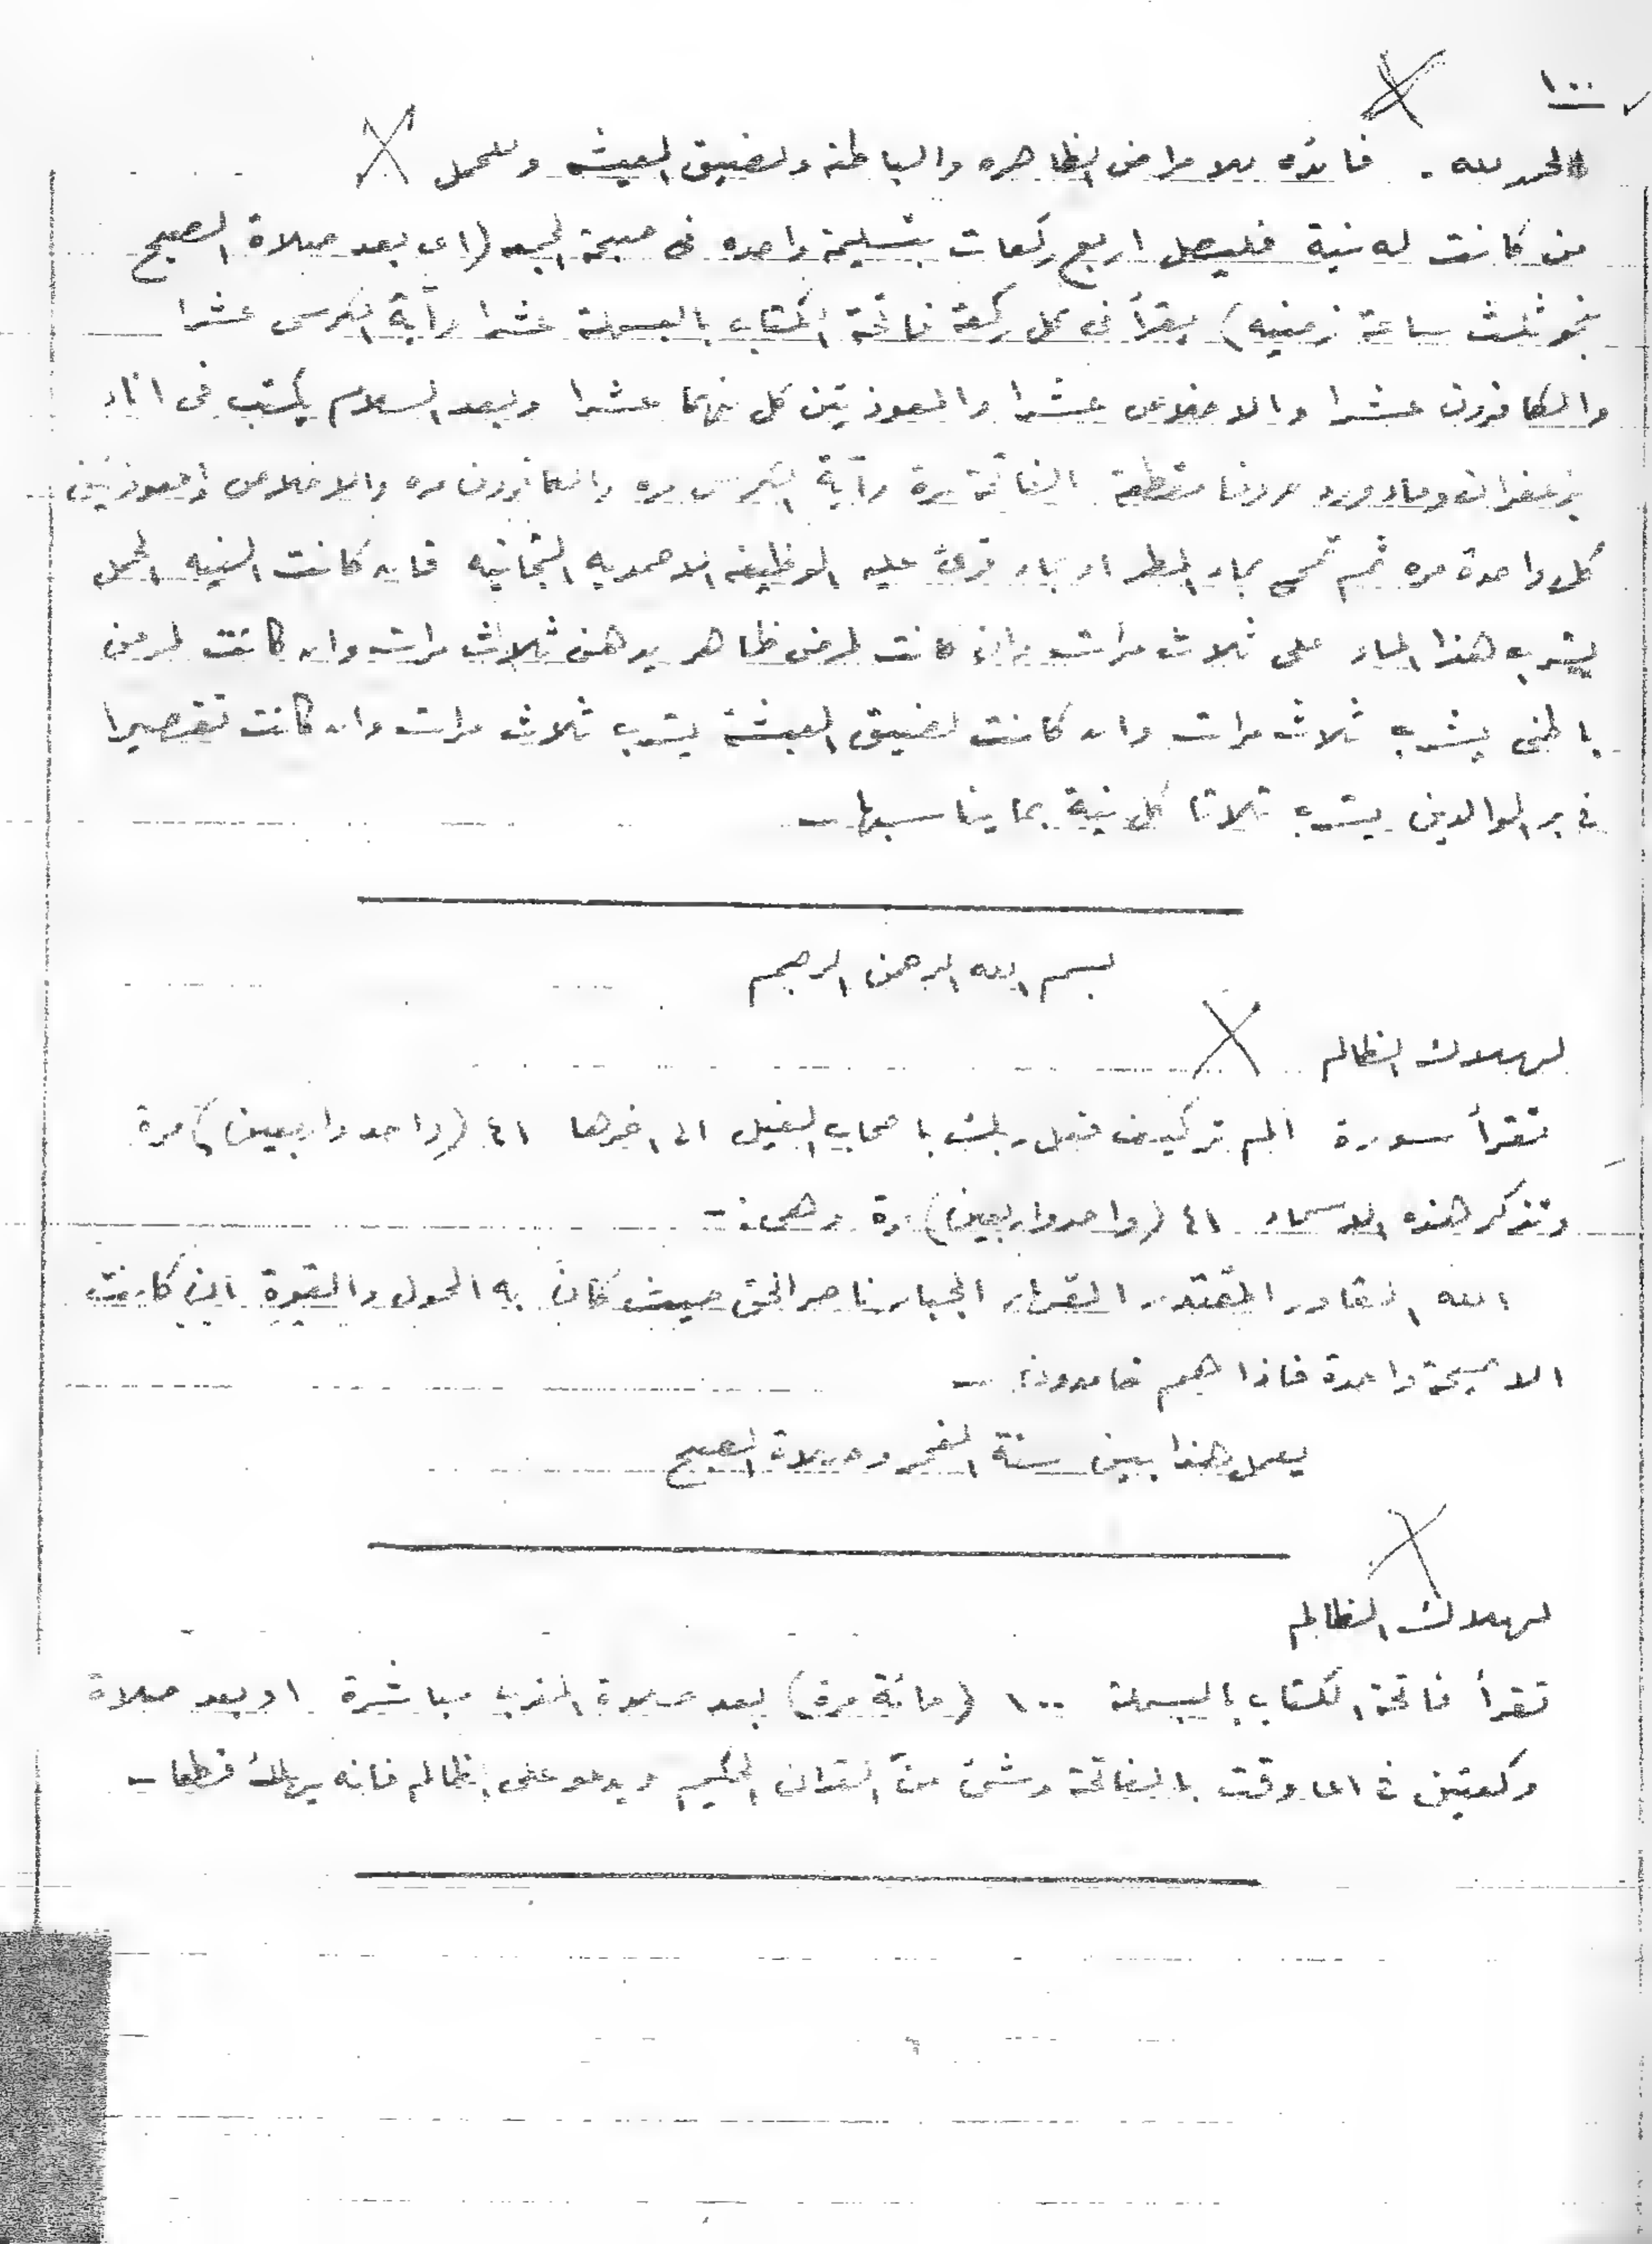 ١٠٠
الحمد لله . فائده للامراض الظاهره والباطنة ولضيق المعيشه وللحمل
من كانت له نية فليصل اربع ركعات بتسليمة واحده فى صبحة الجمعه (اى بعد صلاة الصبح
بنحو ثلث ساعة زمنيه) يقرأ فى كل ركعة فاتحة الكتاب بالبسملة عشرا وآية الكرسى عشرا
والكافرون عشرا والاخلاص عشرا والمعوذتين كل منهما عشرا وبعد السلام يكتب فى اناء
بزعفران وماء ورد حروفا مقطعة الفاتحة مرة وآية الكرسى مره والكافرون مره والاخلاص والمعوذتين
كل واحدة مره ثم تمحى بماء المطر او بماء قرئ عليه الوظيفه الاحمديه التجانيه فان كانت النيه الحمل
يشرب هذا الماء على ثلاث مرات وان كانت لمرض ظاهر يدهن ثلاث مرات وان كانت لمرض
باطنى يشرب ثلاث مرات وان كانت لضيق المعيشة يشرب ثلاث مرات وان كانت تقصيرا
فى بر الوالدين يشرب ثلاثا كل نية بما يناسبها –
بسم الله الرحمن الرحيم
لهلاك الظالم
تقرأ سورة الم تر كيف فعل ربك باصحاب الفيل الى اخرها ٤١ (واحد واربعين) مرة
وتذكر هذه الاسماء ٤١ (واحد واربعين) مرة وهى :–
الله القادر المقتدر القهار الجبار ناصر الحق حيث كان به الحول والقوة ان كانت
الا صيحة واحدة فاذا هم خامدون –
يعمل هذا بين سنة الفجر وصلاة الصبح
لهلاك الظالم
تقرأ فاتحة الكتاب بالبسملة ١٠٠ (مائة مرة) بعد صلاة المغرب مباشرة او بعد صلاة
ركعتين فى اى وقت بالفاتحة وشئ من القرآن الحكيم ويدعو على الظالم فانه يهلك قطعا –